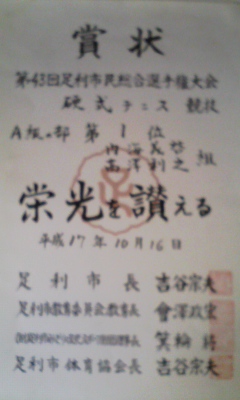 賞状
第43回足利市民総合選手権大会
硬式テニス 競技
A級の部 第1位
内海義啓
高澤利之 組
栄光を讃える
平成17年10月16日
足利市長 吉谷宗夫
足利市教育委員会教育長 會澤政宏
箕輪
足利市体育協会長 吉谷宗夫